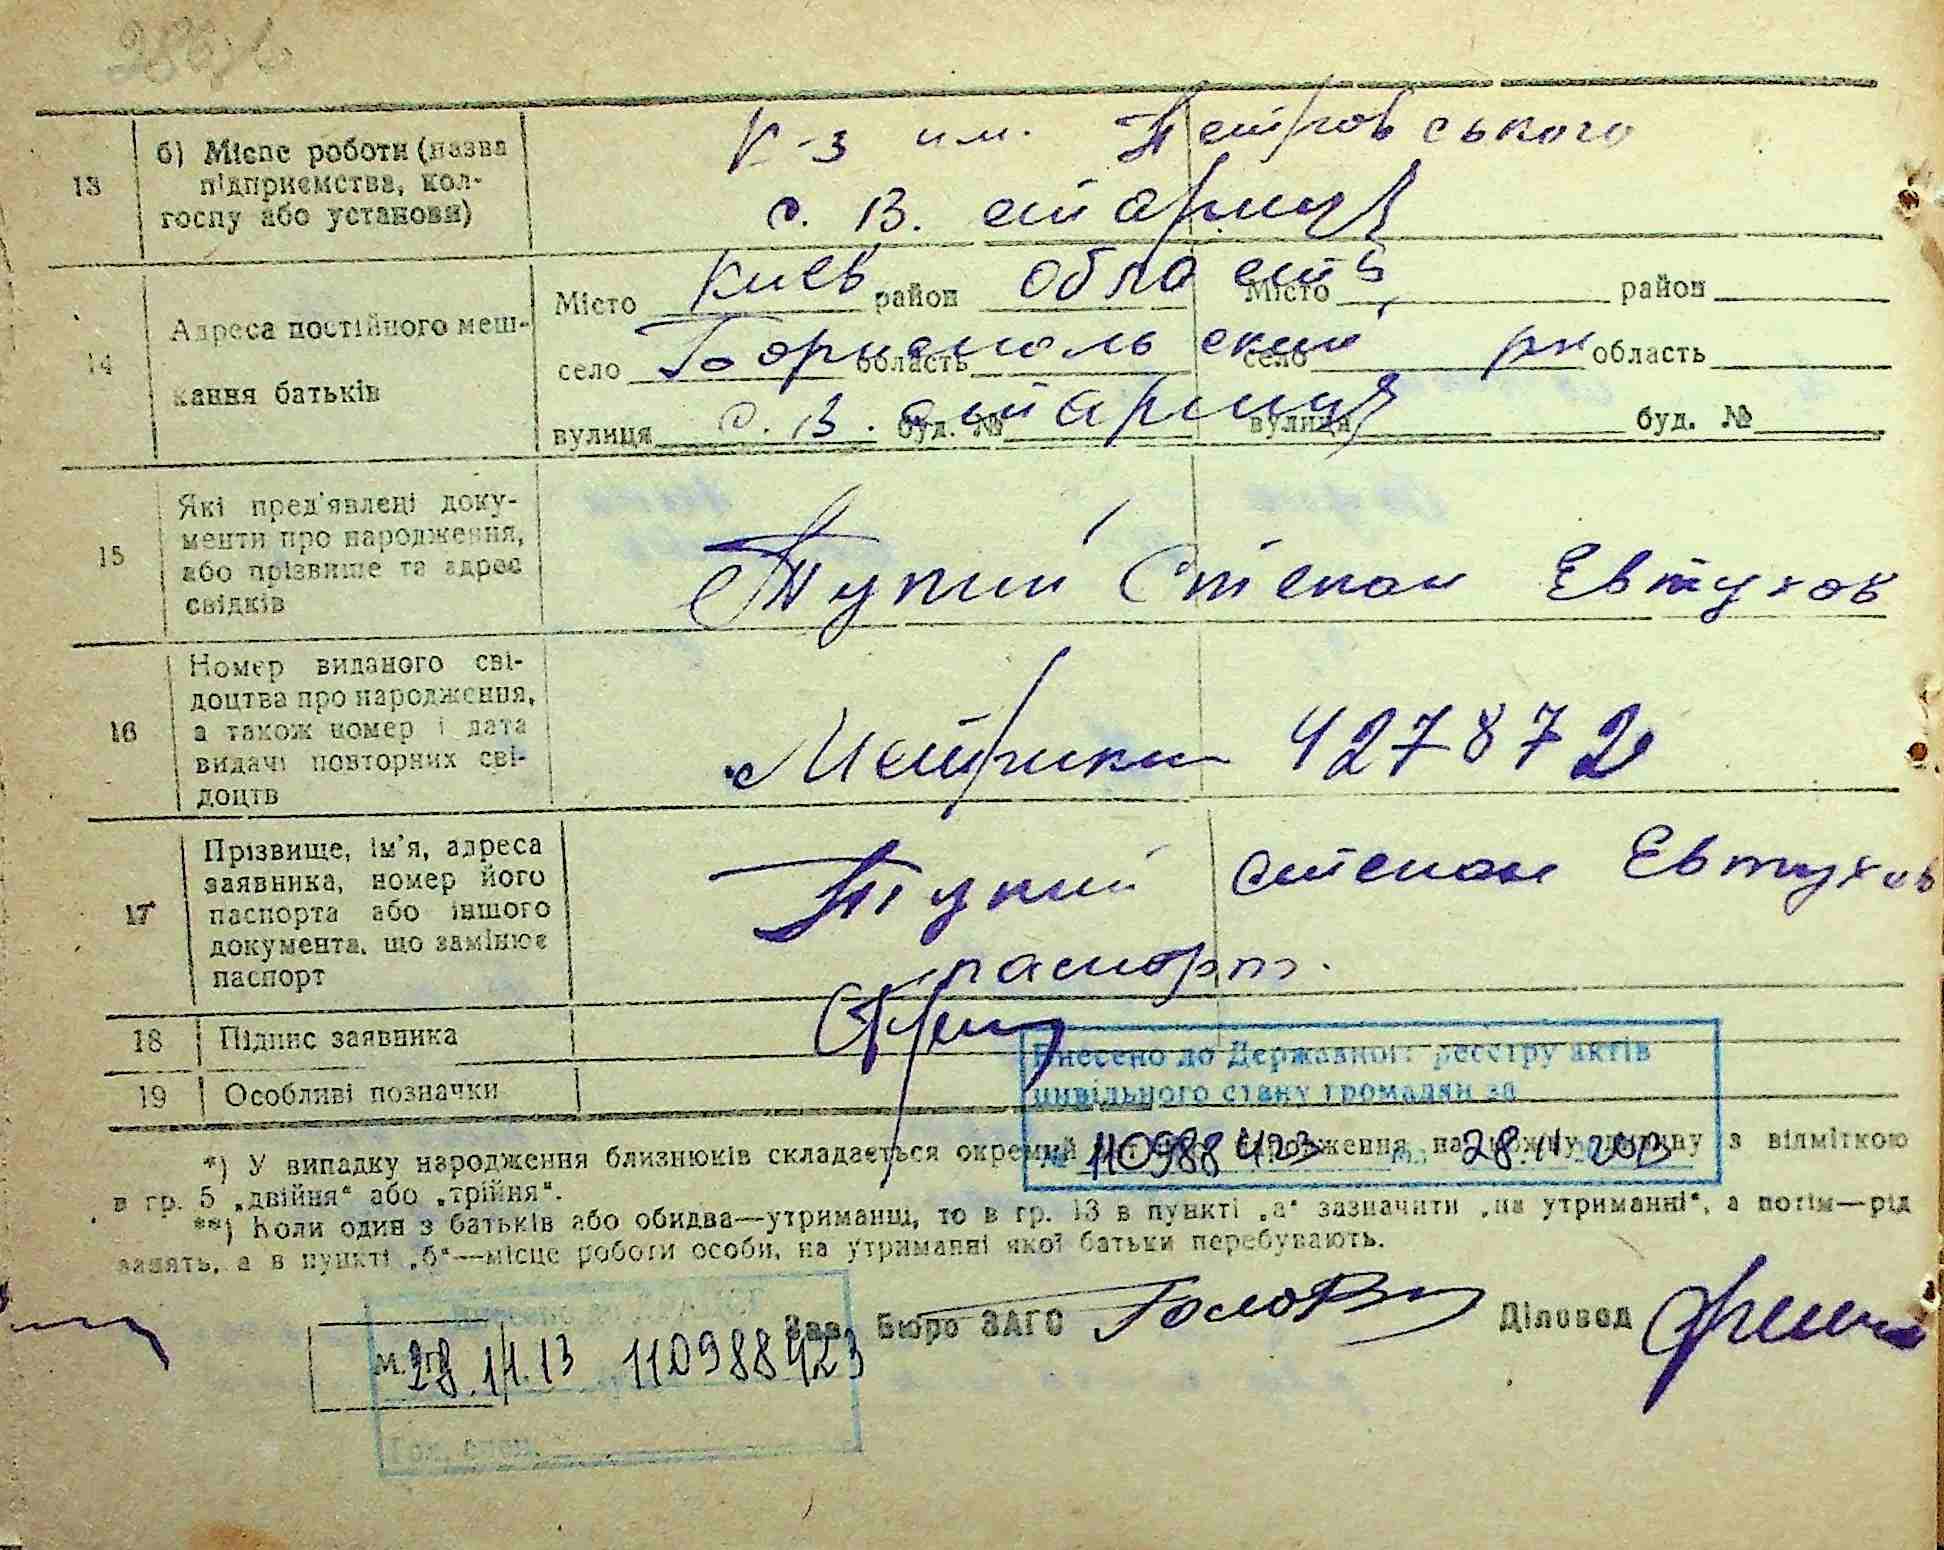 13
б) Місце роботи (назва
підприємства, кол-
госпу або установи)
К-з им. Петровського
с. В. старица
14
Адреса постійного меш-
кання батьків
Місто Киев район область Місто район
село Борыспольский село рн область область
вулиця с. В. старица буд. № вулиця буд. №
15
Які пред'явлені доку-
менти про народження,
або прізвище та адрес
свідків
Тупий Степан Евтухов
16
Номер виданого сві-
доцтва про народження,
а також номер і дата
видачі повторних сві-
доцтв
Метрики 427872
17
Прізвище, ім'я, адреса
заявника, номер його
паспорта або іншого
документа, що замінює
паспорт
Тупий степан Евтухов
паспорт.
18 Підпис заявника
19 Особливі позначки
Внесено до Державного реєстру актів
цивільного стану громадян за
№ 110988423 28.11.2013
*) У випадку народження близнюків складається окремий народження на кожну дитину з відміткою
в гр. 5 „двійня“ або „трійня“.
**) Коли один з батьків або обидва—утриманці, то в гр. 13 в пункті „а“ зазначити „на утриманні“, а потім—рід
занять, а в пункті „б“—місце роботи особи, на утриманні якої батьки перебувають.
Зав. Бюро ЗАГС Діловод
М. П.
28.11.13 110988423
Гол. спец.